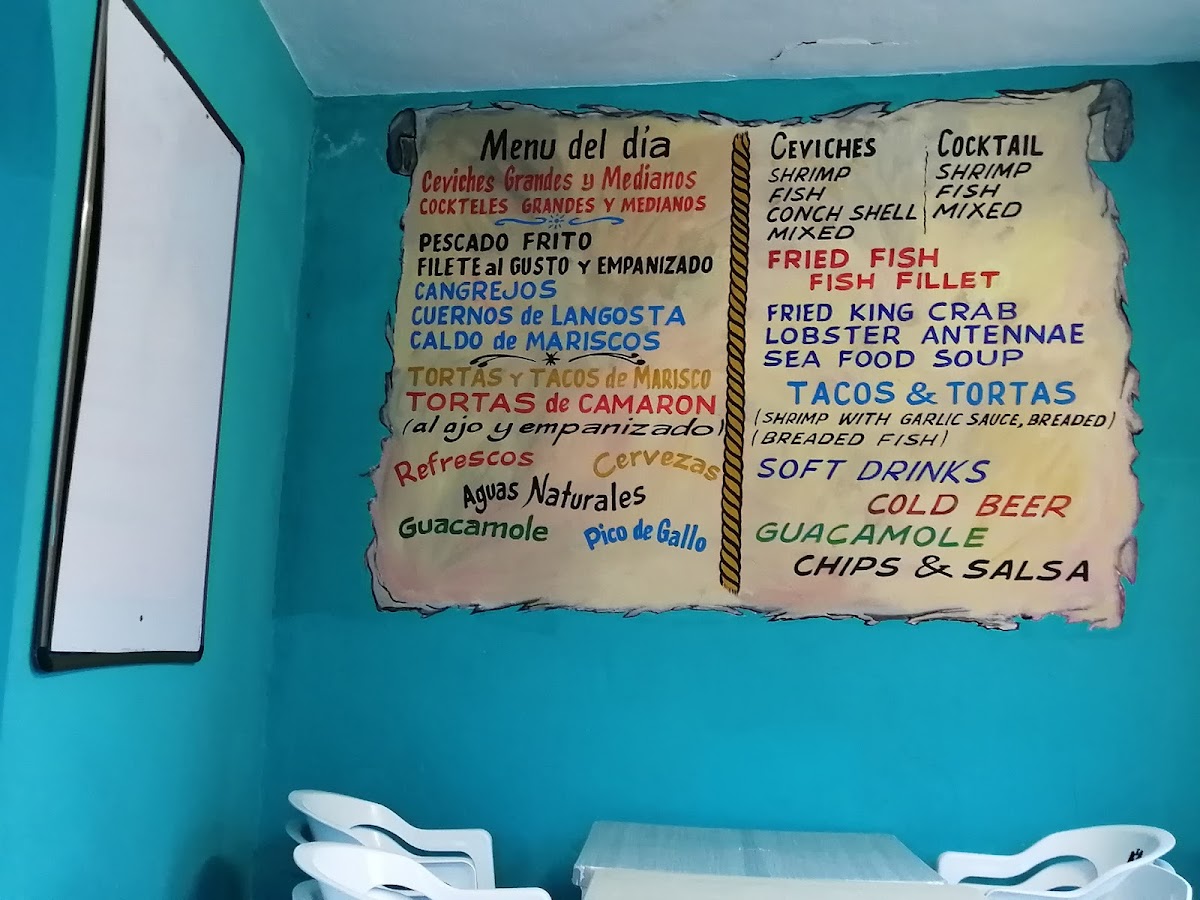 Menu del día
Ceviches Grandes y Medianos
COCKTELES GRANDES Y MEDIANOS
PESCADO FRITO
FILETE al GUSTO Y EMPANIZADO
CANGREJOS
CUERNOS de LANGOSTA
CALDO de MARISCOS
TORTAS Y TACOS de MARISCO
TORTAS de CAMARON
(al ajo y empanizado)
Refrescos Cervezas
Aguas Naturales
Guacamole Pico de Gallo
CEVICHES
SHRIMP
FISH
CONCH SHELL
MIXED
COCKTAIL
SHRIMP
FISH
MIXED
FRIED FISH
FISH FILLET
FRIED KING CRAB
LOBSTER ANTENNAE
SEA FOOD SOUP
TACOS & TORTAS
(SHRIMP WITH GARLIC SAUCE, BREADED)
(BREADED FISH)
SOFT DRINKS
COLD BEER
GUACAMOLE
CHIPS & SALSA